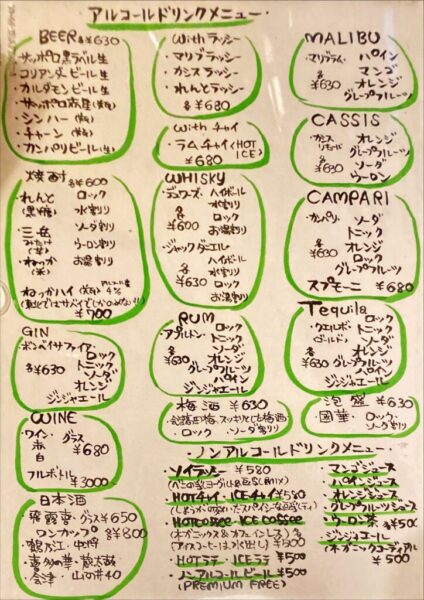 アルコールドリンクメニュー
BEER 各¥630
・サッポロ黒ラベル生
・コリアンダービール生
・カルダモンビール生
・サッポロ赤星(瓶)
・シンハー(瓶)
・チャーン(瓶)
・カンパリビール(生)
焼酎 各¥600
・れんと (黒糖)
・三岳 (芋)
・ねっか (米)
ロック
水割り
ソーダ割り
ウーロン割り
お湯割り
・ねっかハイ(瓶) アルコール度 4%
¥700
GIN
・ボンベイサファイア
各¥630
ロック
トニック
ソーダ
オレンジ
ジンジャエール
WINE
・ワイン・グラス
赤
白
¥680
フルボトル
¥3000
日本酒
・飛露喜・グラス¥650
ワンカップ 各¥800
・鶴乃江・中将
・喜多の華・蔵太鼓
・会津・山の井40
Withラッシー
・マリブラッシー
・カシスラッシー
・れんとラッシー
各¥680
Withチャイ
・ラムチャイ(HOT ICE)
¥680
WHISKY
・デュワーズ・ハイボール
各¥600
水割り
ロック
お湯割り
・ジャックダニエル
各¥630
ハイボール
水割り
ロック
お湯割り
RUM
・アプルトン
各¥630
ロック
トニック
ソーダ
オレンジ
グレープフルーツ
パイン
ジンジャエール
梅酒 ¥630
・ロック ソーダ割り
MALIBU
・マリブラム
各¥630
パイン
マンゴ
オレンジ
グレープフルーツ
CASSIS
・カシスリキュール
各¥630
オレンジ
グレープフルーツ
ソーダ
ウーロン
CAMPARI
・カンパリ
各¥630
ソーダ
トニック
オレンジ
ロック
グレープフルーツ
スプモーニ ¥680
Tequila
・クエルボ・ゴールド
各¥630
ロック
トニック
ソーダ
オレンジ
グレープフルーツ
パイン
ジンジャエール
泡盛 ¥630
・國華・ロック・ソーダ割り
ノンアルコールドリンクメニュー
・ソイラッシー ¥580
・HOTチャイ・ICEチャイ¥580
・HOTCOFFEE・ICE COFFEE
・HOTラテ・ICEラテ ¥500
・ノンアルコールビール¥500
(PREMIUM FREE)
・マンゴジュース
・パインジュース
・オレンジジュース
・グレープフルーツジュース
・ウーロン茶 各¥500
・ジンジャエール
(オーガニックコーディアル)
¥500